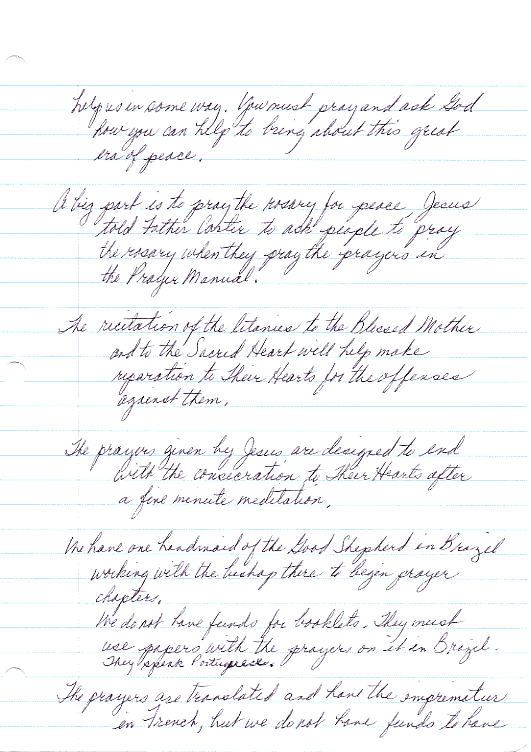 help us in some way. You must pray and ask God
how you can help to bring about this great
era of peace.
A big part is to pray the rosary for peace. Jesus
told Father Carter to ask people to pray
the rosary when they pray the prayers in
the Prayer Manual.
The recitation of the litanies to the Blessed Mother
and to the Sacred Heart will help make
reparation to Their Hearts for the offenses
against them.
The prayers given by Jesus are designed to end
with the consecration to Their Hearts after
a five minute meditation.
We have one handmaid of the Good Shepherd in Brazil
working with the bishop there to begin prayer
chapters.
We do not have funds for booklets. They must
use papers with the prayers on it in Brazil.
They speak Portuguese.
The prayers are translated and have the imprimatur
in French, but we do not have funds to have